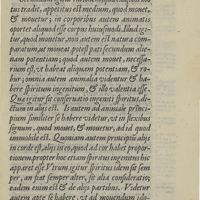 tus tradit, appetitus est medium, quod monet,
& mouetur; in corporibus autem animatis
oportet aliquod esse corpus huiusmodi. Illud igi-
tur, quod mouetur, non autem est natura com-
paratum, ut moneat potest pati secundum alie-
nam potentiam; quod autem monet, necessa-
rium est, ut habeat aliquam potentiam, & ro-
bur; omnia autem animalia videntur & ha-
bere spiritum ingenitum, & illo valentia esse.
Quæ igitur sit conseruatio ingeniti spiritus, di-
ctum in aliis est. Is autem ad animale princi-
pium similiter se habere videtur, ut in flexibus
signum, quod monet, & mouetur, ad id quod
immobile est. Quoniam autem principium aliis
in corde est, aliis in eo, quod ad cor habet propor-
tionem, propter hoc etiam spiritus ingenitus hic
apparet esse. Vtrum igitur spiritus idem sit sem-
per, an fiat semper, sit alia consideratio;
eadem enim est & de aliis partibus. Videtur
autem apte se habere, ut ad mouendum ido-